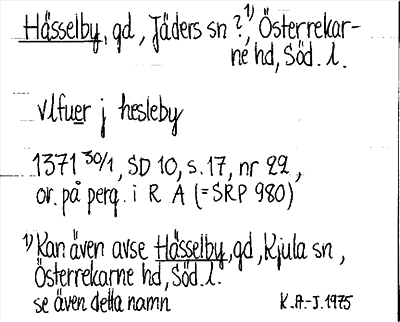 Hässelby, gd, Jäders sn ?¹⁾, Österrekar-
ne hd, Söd. l.
vlfuer j hesleby
1371 30/1, SD 10, s. 17, nr 22,
or. på perg. i R A (= SRP 980)
¹⁾ Kan även avse Hässelby, gd, Kjula sn,
Österrekarne hd, Söd. l.
se även detta namn
K. A.-J. 1975